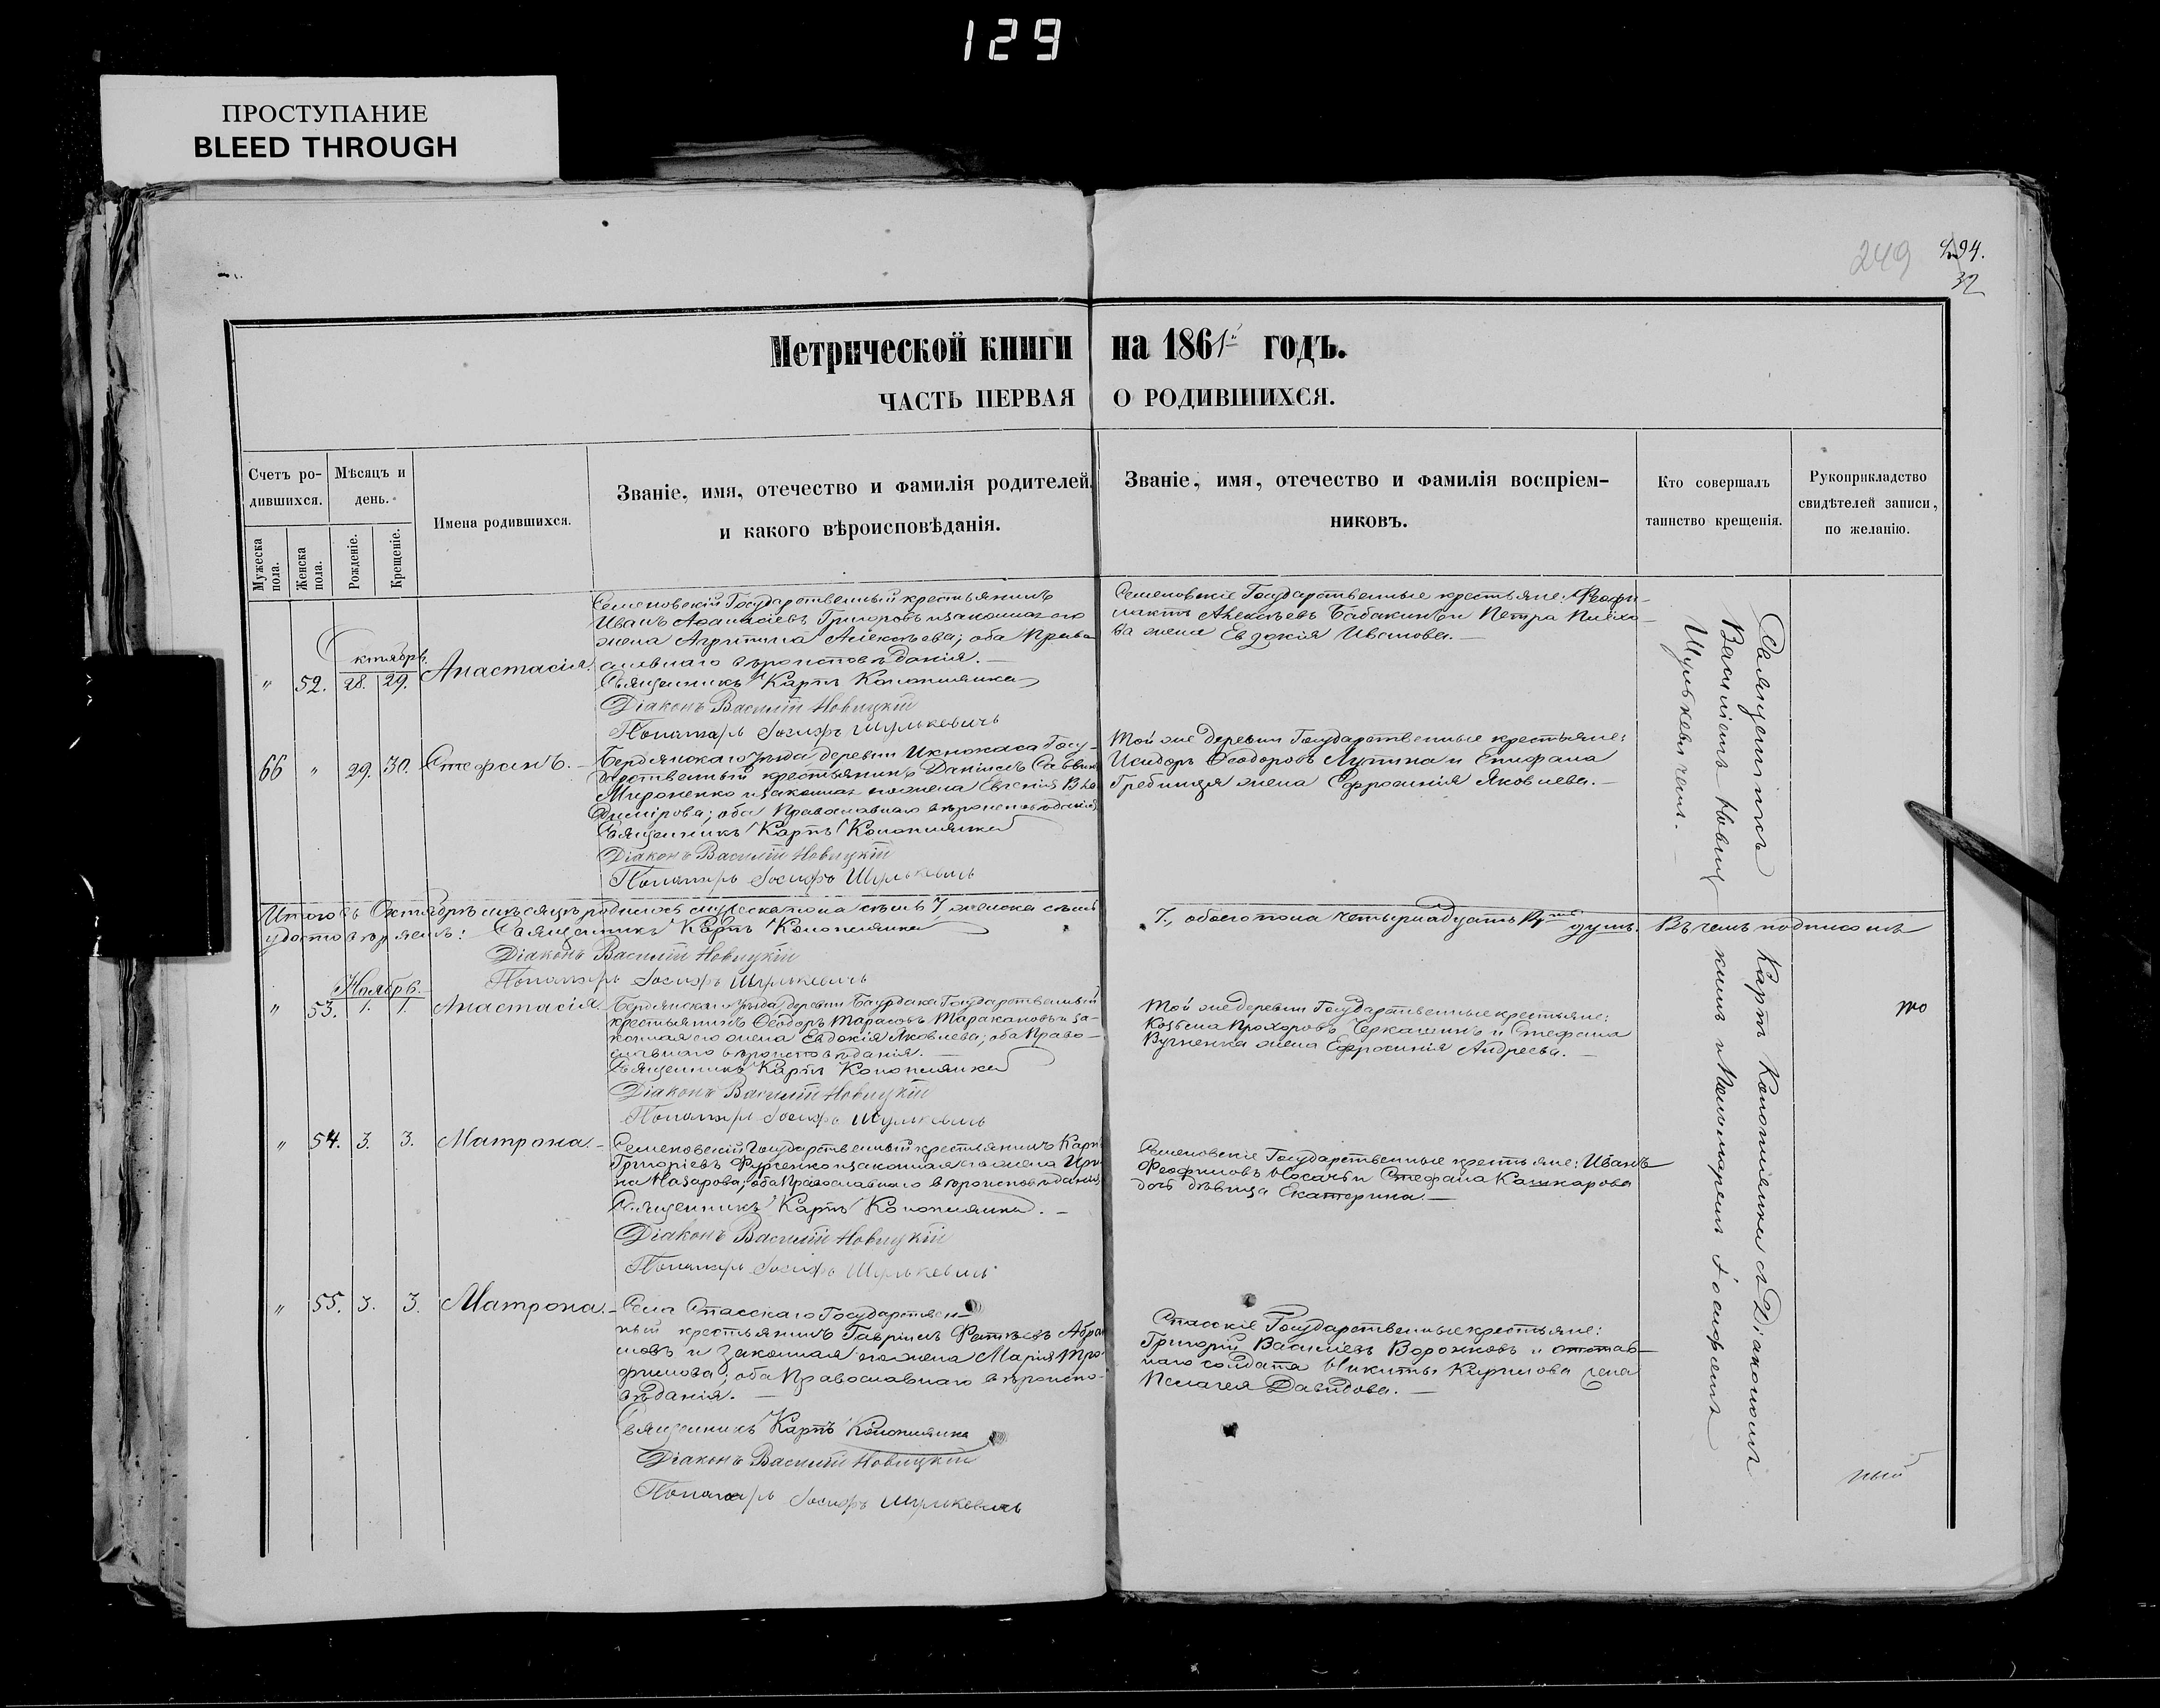 129
ПРОСТУПАНИЕ
BLEED THROUGH
249
94.
32
Метрической книги на 1861й годъ.
ЧАСТЬ ПЕРВАЯ О РОДИВШИХСЯ.
Счетъ ро-
дившихся.
Мужеска
пола.
Женска
пола.
Мѣсяцъ и
день.
Рожденіе.
Крещеніе.
Имена родившихся.
Званіе, имя, отечество и фамилія родителей,
и какого вѣроисповѣданія.
Званіе, имя, отечество и фамилія воспріем-
никовъ.
Кто совершалъ
таинство крещенія.
Рукоприкладство
свидѣтелей записи,
по желанію.
Октябрь.
" 52. 28. 29. Анастасія.
Семеновскій Государственный крестьянинъ
Иванъ Аѳанасіевъ Григоровъ и законная его
жена Агрипина Алексѣева; оба Право
славнаго вѣроисповѣданія.—
Священникъ Карпъ Конопляника
Діаконъ Василій Новицкій
Пономарь Іосифъ Шулькевичъ
Семеновскіе Государственные крестьяне: Феофи-
лактъ Алексѣевъ Бабакинъ и Петра Плѣхо-
ва жена Евдокія Иванова.—
66 " 29. 30. Стефанъ.—
Бердянскаго уѣзда деревни Государственный крестьянинъ Даніилъ Саввинъ
Мироненко и законная его жена Евгенія Вла
димірова; оба Православнаго вѣроисповѣданія
Священникъ Карпъ Конопляника
Діаконъ Василій Новицкій
Пономарь Іосифъ Шулькевичъ
Той же деревни Государственные крестьяне:
Исидоръ Ѳеодоровъ Лупина и Епифана
Гребинця жена Ефросинія Яковлева.—
Итого въ Октябрѣ мѣсяцѣ родилось мужеска пола семь 7, женска семь
7., обоего пола четырнадцать душъ. Въ чемъ подписомъ
удостовѣряемъ: Священникъ Карпъ Конопляника
Діаконъ Василій Новицкій
Пономарь Іосифъ Шулькевичъ
Ноябрь.
" 53. 1. 1. Анастасія.
Бердянскаго уѣзда деревни Баурдака Государственный
крестьянинъ Ѳеодоръ Тарасовъ Таракановъ и за-
конная его жена Евдокія Яковлева; оба Право-
славнаго вѣроисповѣданія.—
Священникъ Карпъ Конопляника
Діаконъ Василій Новицкій
Пономарь Іосифъ Шулькевичъ
Той же деревни Государственные крестьяне:
Козьма Прохоровъ Черкашинъ и Стефана
жена Ефросинія Андреева.—
" 54. 3. 3. Матрона.—
Семеновскій Государственный крестьянинъ Карпъ
Григоріевъ и законная его жена Ири
на Назарова; оба Православнаго вѣроисповѣданія
Священникъ Карпъ Конопляника.—
Діаконъ Василій Новицкій
Пономарь Іосифъ Шулькевичъ
Семеновскіе Государственные крестьяне: Иванъ
Феофиловъ Носачъ и Стефана Кашкарова
дочь дѣвица Екатерина.—
" 55. 3. 3. Матрона.—
Села Спасскаго Государствен-
ный крестьянинъ Гавріилъ Фатѣевъ Абра
мовъ и законная его жена Марія Тро
фимова; оба Православнаго вѣроиспо-
вѣданія.—
Священникъ Карпъ Конопляника
Діаконъ Василій Новицкій
Пономарь Іосифъ Шулькевичъ
Спасскіе Государственные крестьяне:
Григорій Василіевъ Воронковъ и отстав-
наго солдата Никиты Кирилова жена
Пелагея Давыдова.—
Священникъ Карпъ Конопляника съ Діакономъ
Василіемъ Новицкимъ и Пономаремъ Іосифомъ
Шулькевичемъ.—